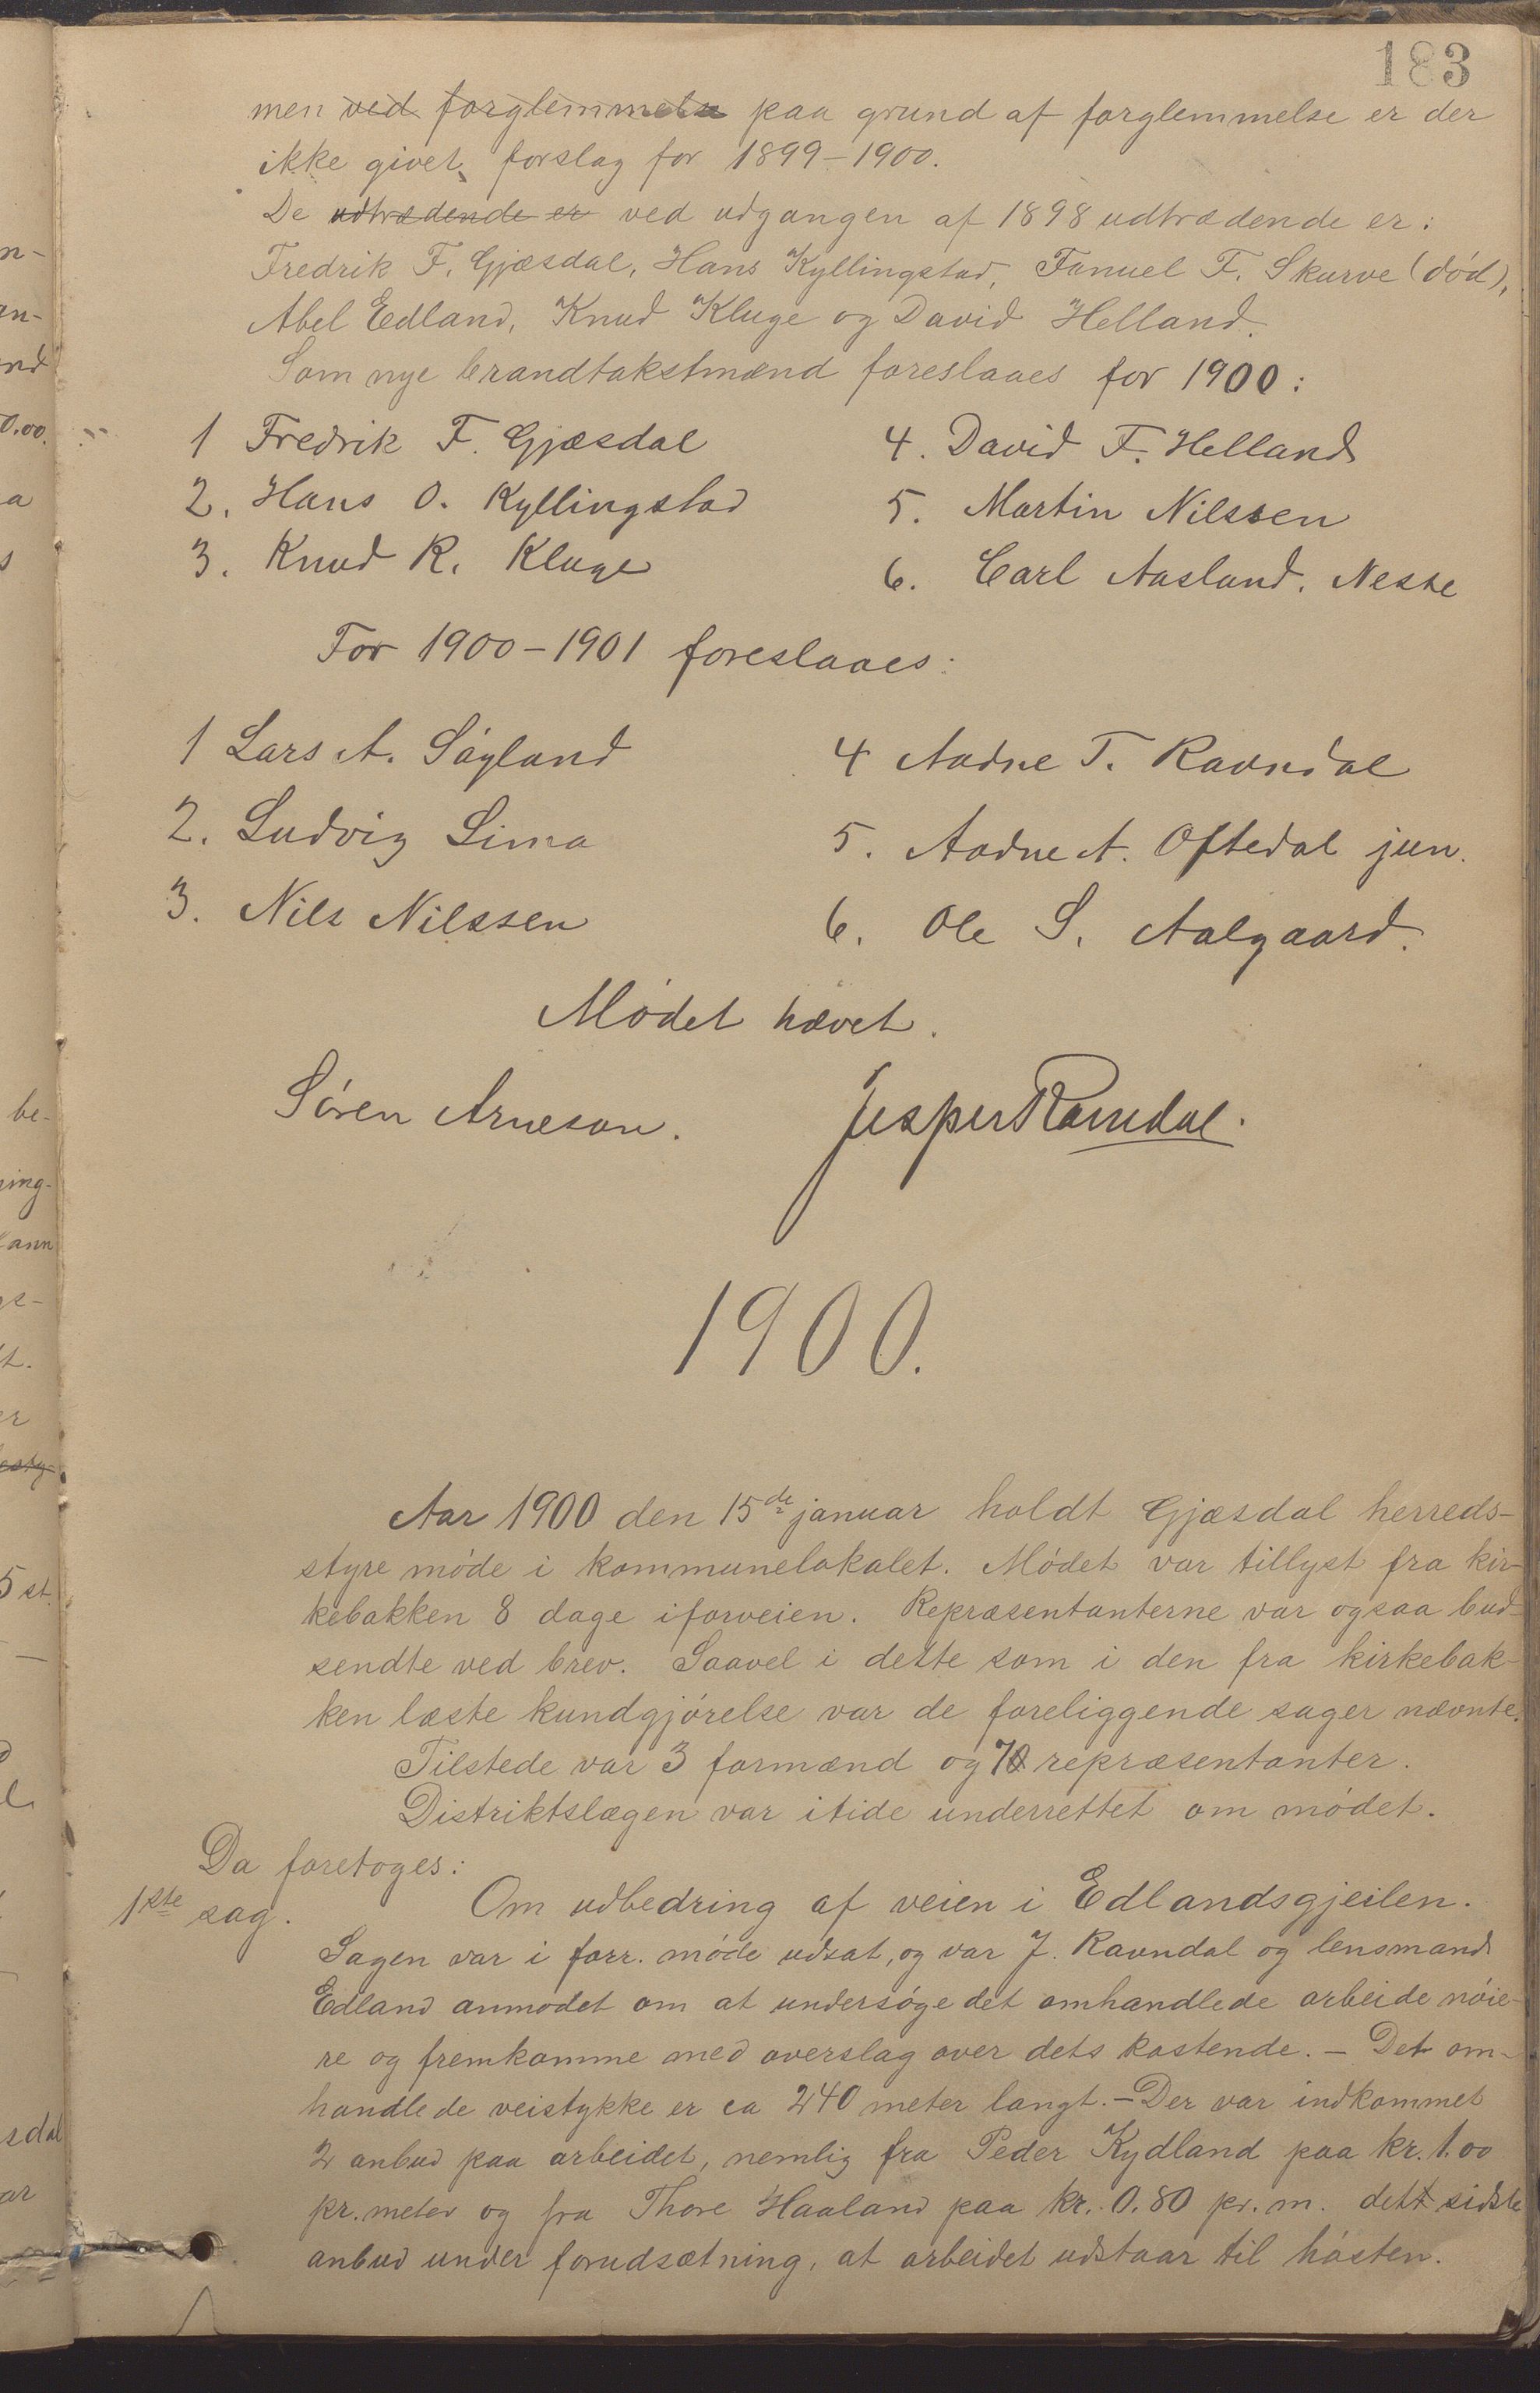 183
men ved forglemmelse paa grund af forglemmelse er der
ikke givet forslag for 1899-1900.
De udtrædende er ved udgangen af 1898 udtrædende er:
Fredrik F. Gjæsdal, Hans Kyllingstad, Fanuel F. Skurve (död),
Abel Edland, Knud Kluge og David Helland.
Som nye brandtakstmænd foreslaaes for 1900:
1 Fredrik F. Gjæsdal
2. Hans O. Kyllingstad
3. Knud R. Kluge
4. David F. Helland
5. Martin Nilssen
6. Carl Aasland. Nesse
For 1900-1901 foreslaaes:
1 Lars A. Sögland
2. Ludvig Lima
3. Nils Nilssen
4 Aadne T. Ravndal
5. Aadne A. Oftedal jun.
6. Ole S. Aalgaard.
Mödet hævet.
Sören Arneson. Jesper Ravndal.
1900.
Aar 1900 den 15de januar holdt Gjæsdal herreds-
styre möde i kommunelokalet. Mödet var tillyst fra kir-
kebakken 8 dage iforveien. Repræsentanterne var ogsaa bud-
sendte ved brev. Saavel i dette som i den fra kirkebak-
ken læste kundgjörelse var de foreliggende sager nævnte.
Tilstede var 3 formænd og 7 repræsentanter.
Distriktslægen var itide underrettet om mödet.
Da foretoges:
1ste sag. Om udbedring af veien i Edlandsgjeilen.
Sagen var i forr. möde udsat, og var J. Ravndal og lensmand
Edland anmodet om at undersöge det omhandlede arbeide nöie-
re og fremkomme med overslag over dets kostende. - Det om-
handlede veistykke er ca 240 meter langt. - Der var indkommet
2 anbud paa arbeidet, nemlig fra Peder Kydland paa kr. 1.00
pr. meter og fra Thore Haaland paa kr. 0.80 pr. m. det sidste
anbud under forudsætning, at arbeidet udstaar til hösten.